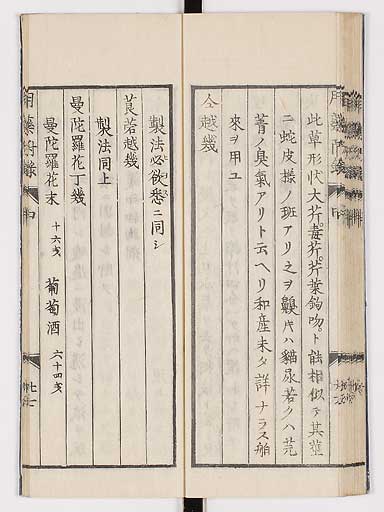 此草形状大芹毒芹芹葉鈎吻ト能相似テ其茎
ニ蛇皮様ノ斑アリ之ヲ齅バ猫尿若クハ芫
菁ノ臭氣アリト云ヘリ和産未タ詳ナラス舶
來ヲ用ユ
仝越幾
製法必欲悉ニ同シ
莨若越幾
製法同上
曼陀羅花丁幾
曼陀羅花末 十六戔 葡萄酒 六十四戔